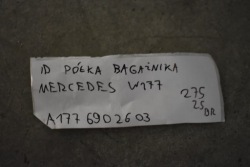 D PÓŁKA BAGAŻNIKA
MERCEDES W177
275
25
BR
A177 690 26 03